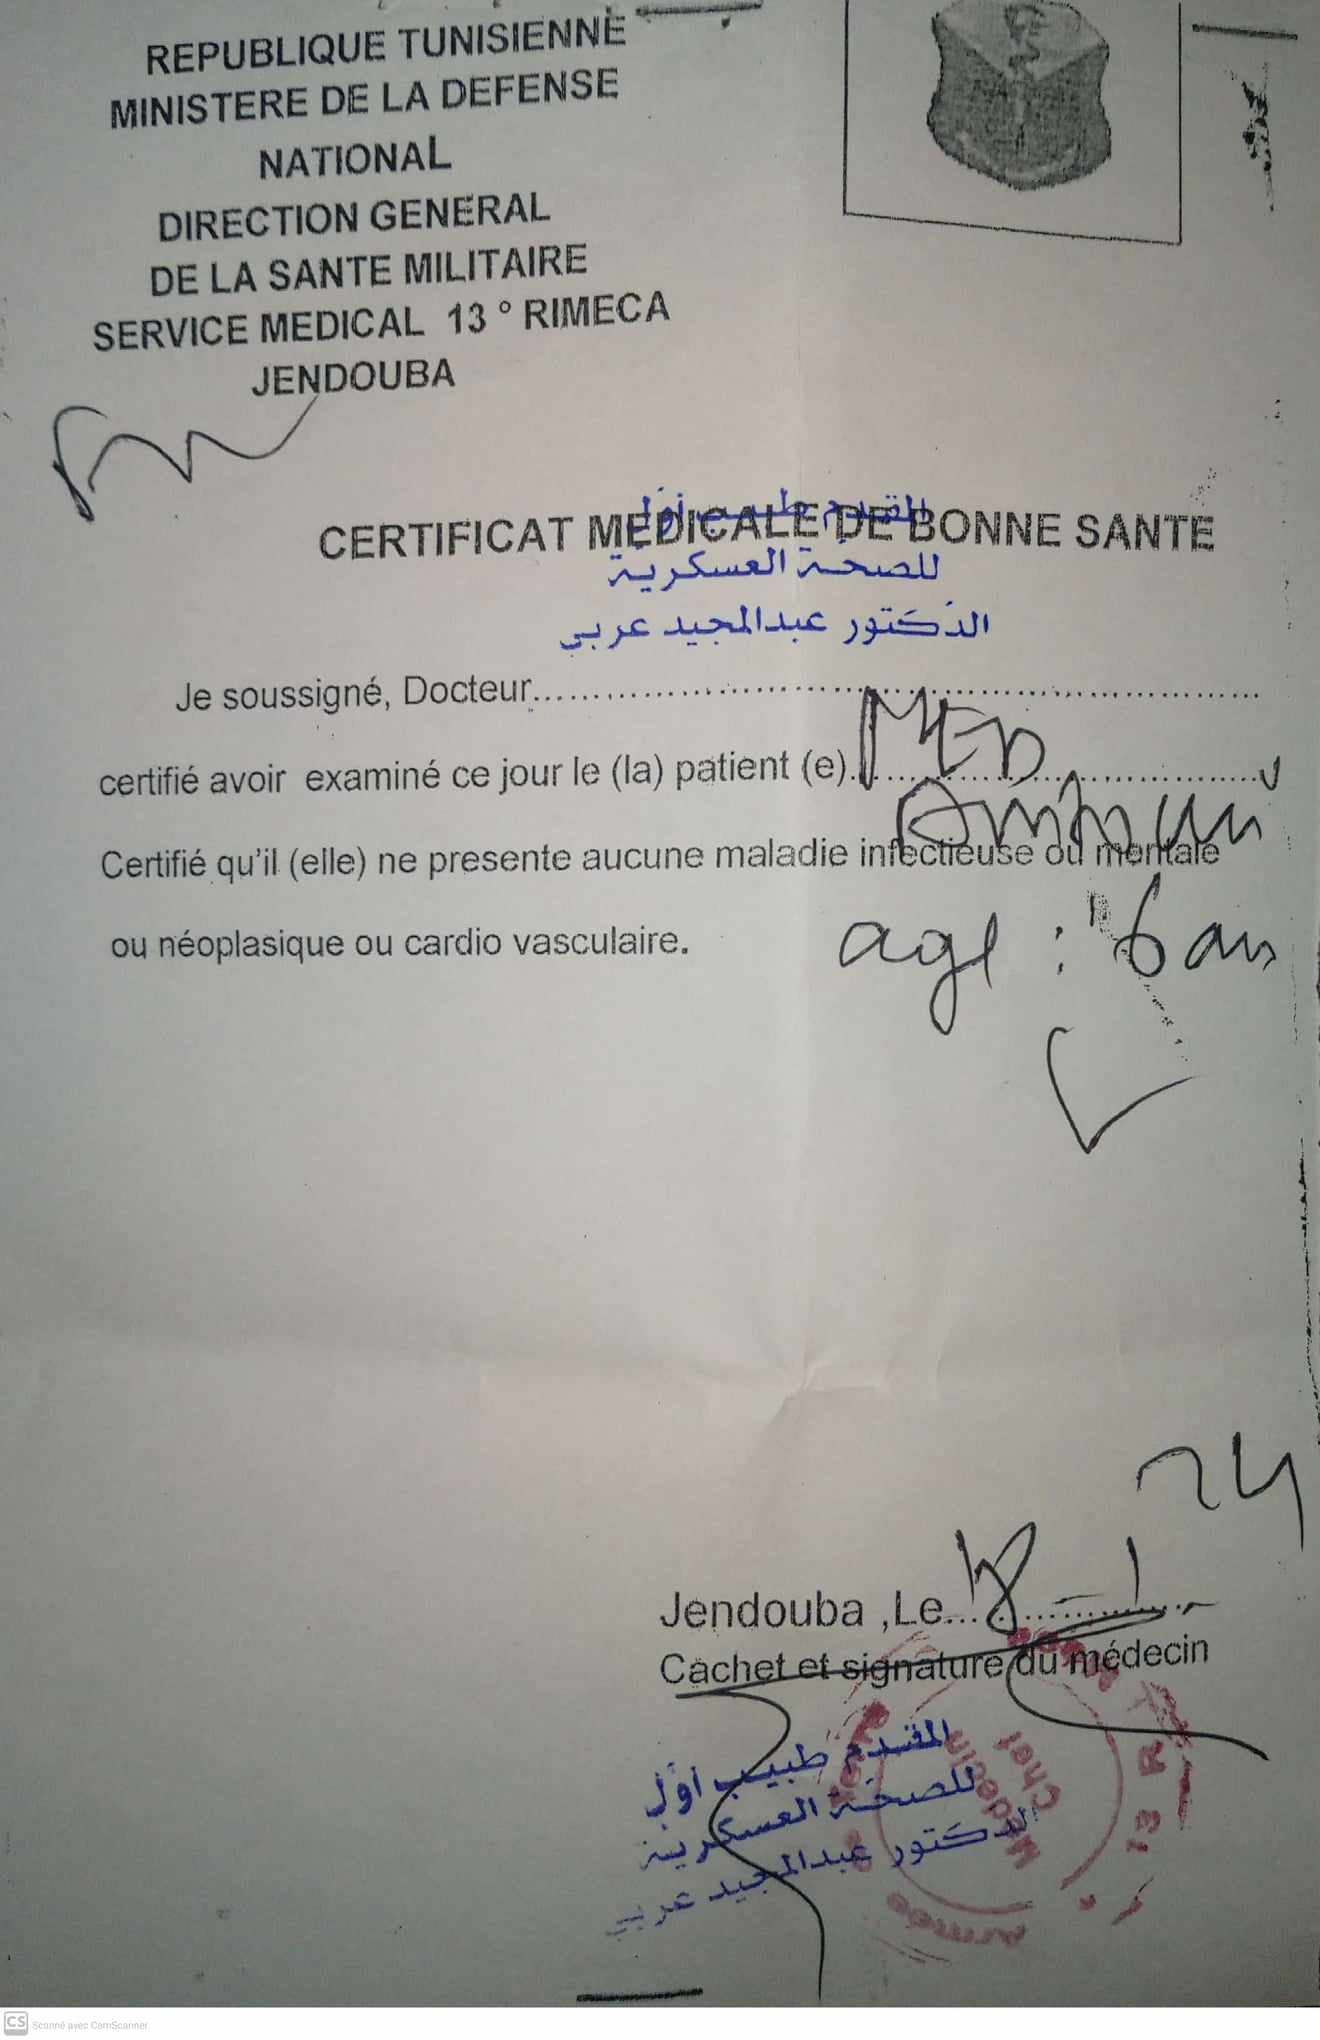 REPUBLIQUE TUNISIENNE
MINISTERE DE LA DEFENSE
NATIONAL
DIRECTION GENERAL
DE LA SANTE MILITAIRE
SERVICE MEDICAL 13 ° RIMECA
JENDOUBA
CERTIFICAT MEDICALE DE BONNE SANTE
المقدم طبيب أول
للصحة العسكرية
الدكتور عبدالمجيد عربي
Je soussigné, Docteur
certifié avoir examiné ce jour le (la) patient (e) MED
Certifié qu'il (elle) ne presente aucune maladie infectieuse ou mentale
ou néoplasique ou cardio vasculaire.
age : 6 ans
24
Jendouba ,Le 18 - 1 -
Cachet et signature du médecin
المقدم طبيب أول
للصحة العسكرية
الدكتور عبدالمجيد عربي
Médecin
Chef
Armée
13 R
CS Scanné avec CamScanner